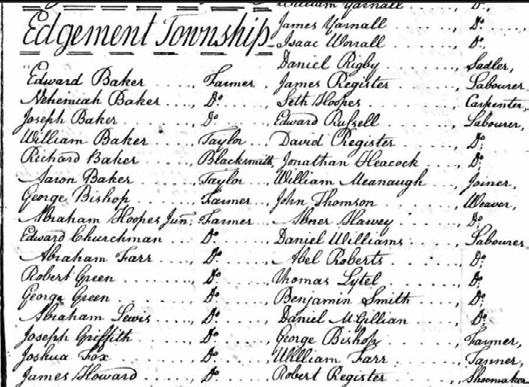 Edgement Township
Edward Baker Farmer
Nehemiah Baker Do
Joseph Baker Do
William Baker Taylor
Richard Baker Blacksmith
Aaron Baker Taylor
George Bishop Farmer
Abraham Hoopes Jun. Farmer
Edward Churchman Do
Abraham Farr Do
Robert Green Do
George Green Do
Abraham Lewis Do
Joseph Griffith Do
Joshua Fox Do
James Howard Do
William Yarnall Do
James Yarnall Do
Isaac Worrall Do
Daniel Rigby Sadler,
James Register Labourer
Seth Hoopes Carpenter,
Edward Russell Labourer,
David Register Do
Jonathan Heacock Do
William Meanaugh Joiner,
John Thomson Weaver,
Abner Hawey Do
Daniel Williams Labourer
Abel Roberts Do
Thomas Lytel Do
Benjamin Smith Do
Daniel McGillian Do
George Bishop Farmer,
William Farr Tanner,
Robert Register Shoemaker